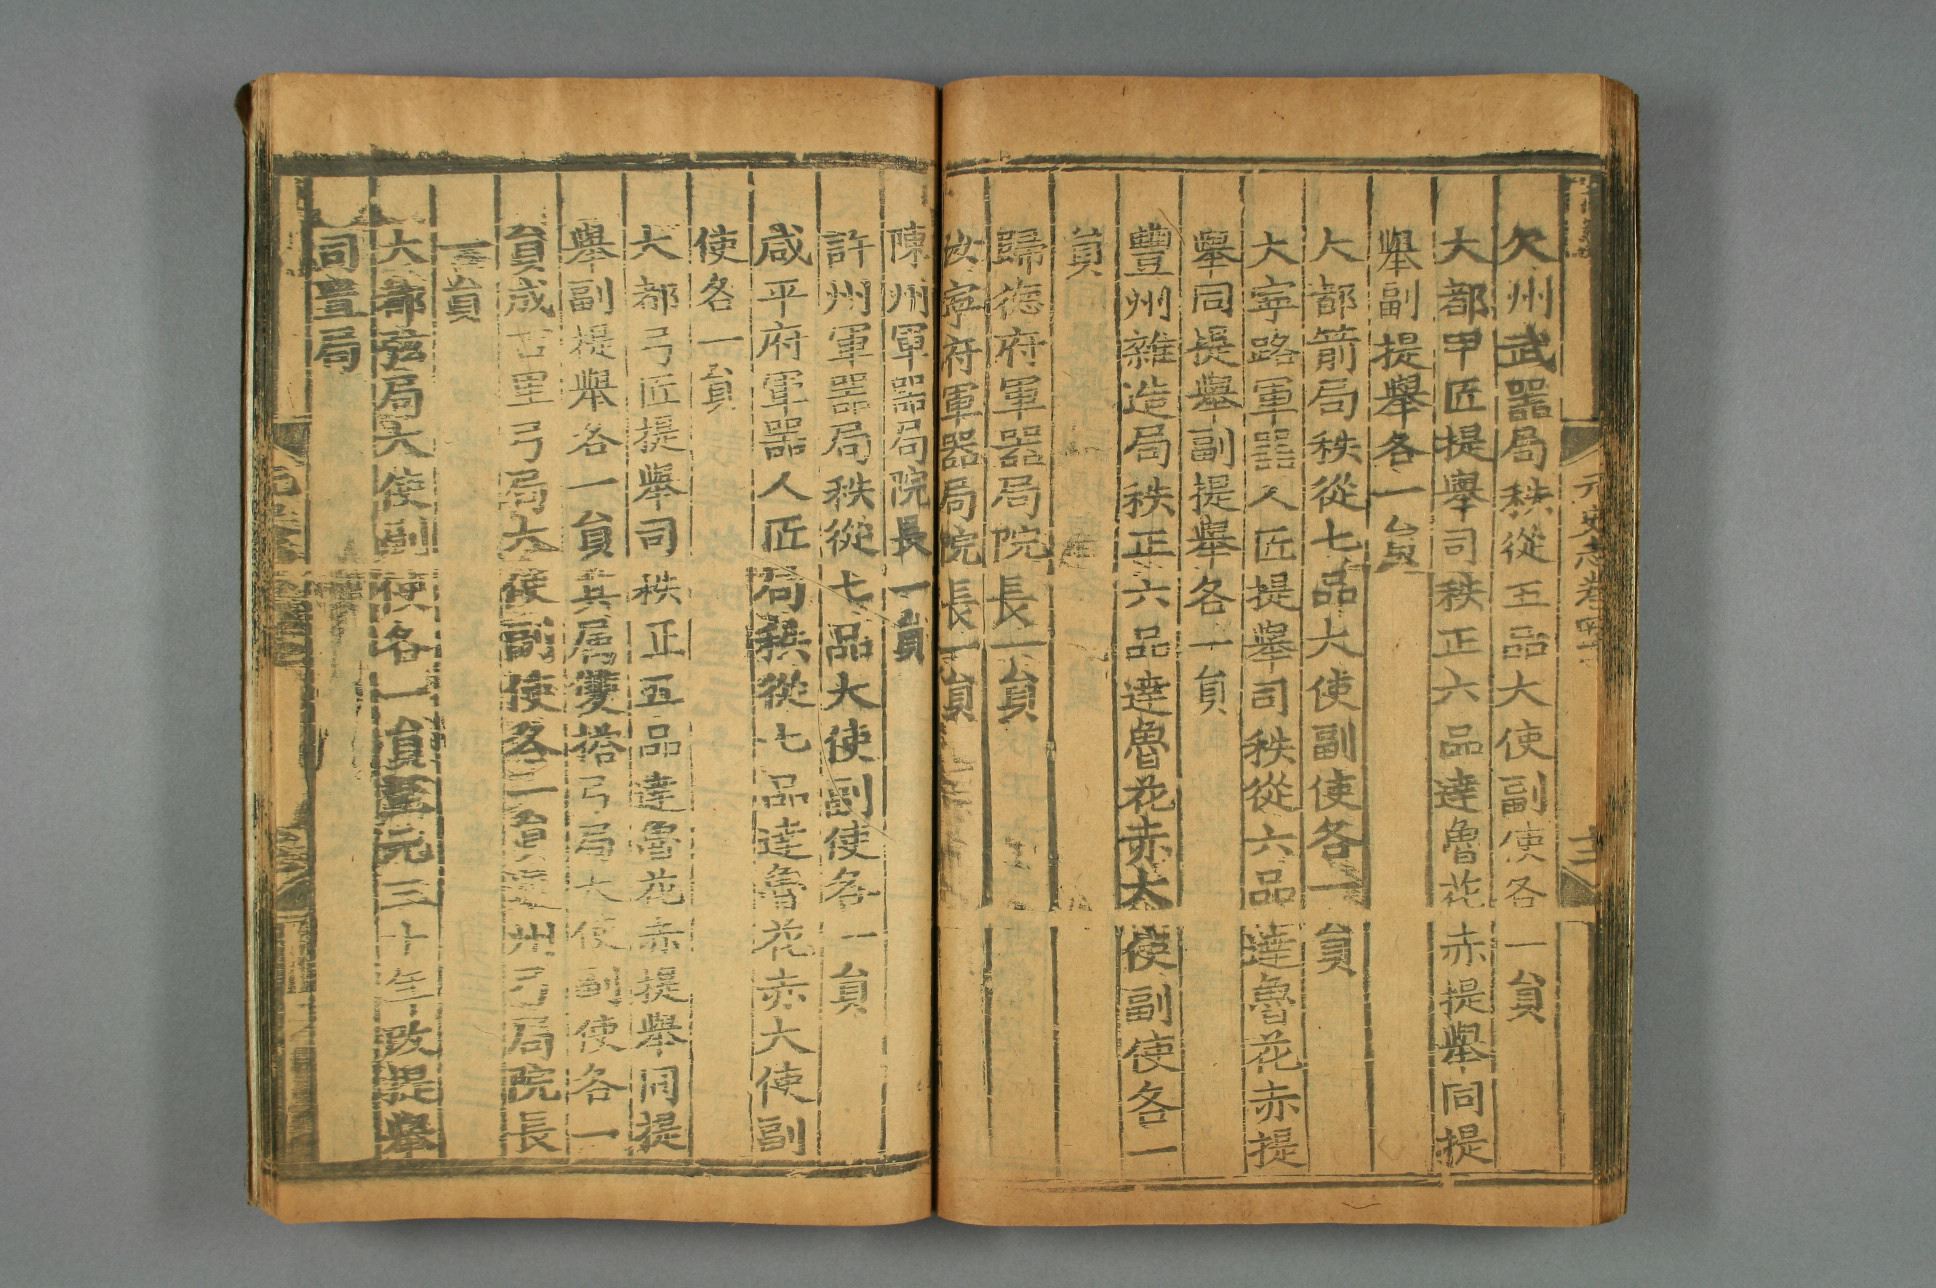 欠州武器局秩從五品大使副使各一員
大都甲匠提舉司秩正六品達魯花赤提舉同提
舉副提舉各一員
大都箭局秩從七品大使副使各一員
大寧路軍器人匠提舉司秩從六品達魯花赤提
舉同提舉副提舉各一員
豐州雜造局秩正六品達魯花赤大使副使各一
員
歸德府軍器局院長一員
汝寧府軍器局院長一員
陳州軍器局院長一員
許州軍器局秩從七品大使副使各一員
咸平府軍器人匠局秩從七品達魯花赤大使副
使各一員
大都弓匠提舉司秩正五品達魯花赤提舉同提
舉副提舉各一員其屬雙搭弓局大使副使各一
員成吉里弓局大使副使各一員通州弓局院長
一員
大都弦局大使副使各一員至元三十年改提舉
司置局
元史志卷四十
十二